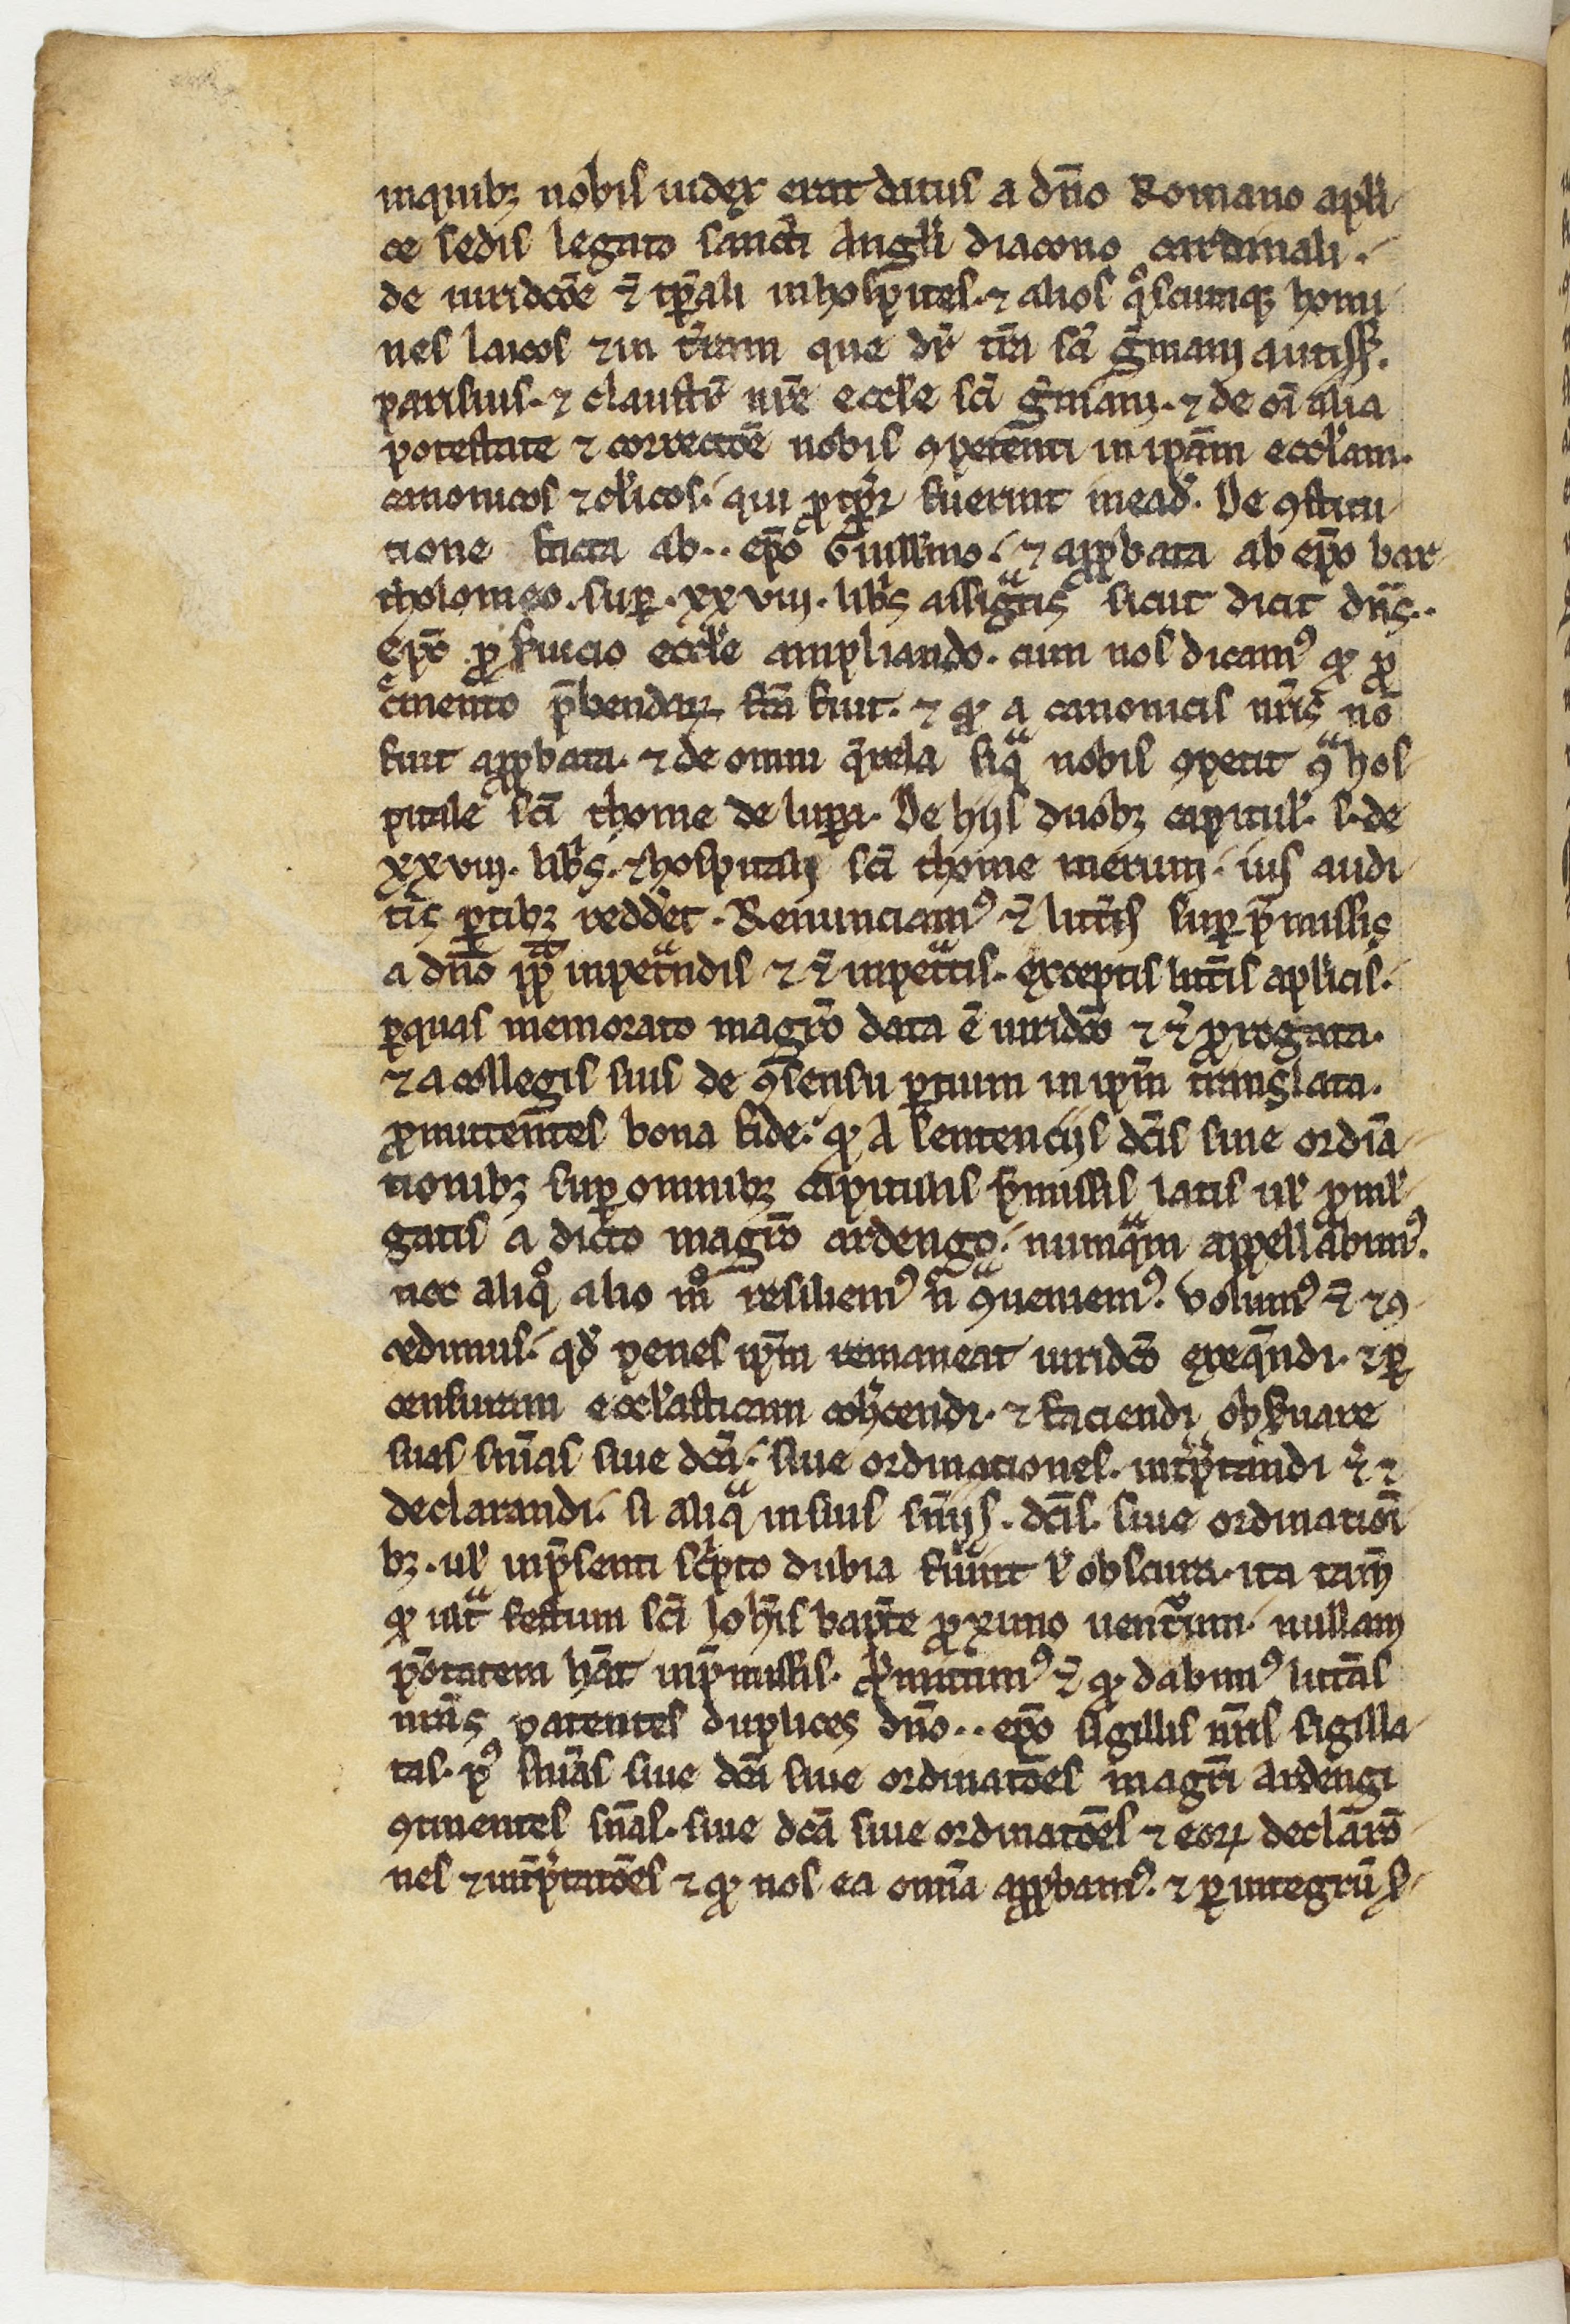 inquibꝫ nobis iudex erat datus a dño Romano apli-
ce sedis legato sancti Angli diacono cardinali.
de iuridcõe ⁊̃ tp̃ali inhospites. ⁊ alios qͦscumqꝫ homi-
nes laicos ⁊ in t̃ram que dr̃ tr̃a sc̃i g̃mani autiss̃.
parisius. ⁊ claustr̃ nr̃e eccl̃e sc̃i g̃mani. ⁊ de oĩ alia
potestate ⁊ correctõe nobis ꝯpetenti in ip̃am eccl̃am.
canonicos ⁊ cl̃icos. qui ꝓ tp̃r fuerint inead̃. De ꝯstitu-
tione facta ab .. ep̃o Guill̃mo. ⁊ apꝓbata ab ep̃o bar-
tholomeo. suꝑ .xxviii. libr̃s assigᵃtis sicut dicit dñs ..
ep̃c ꝓ ẜuicio eccl̃e ampliando. cum nos dicamꝰ ꝙ ꝓ
c̃mento p̃bendaꝝ fc̃a fuit. ⁊ ꝙ a canonicis nr̃is nõ
fuit apꝓbata. ⁊ de omni q̃rela siqᵃ nobis ꝯpetit ꝯᵃ hos-
pitale sc̃i thome de lupa. De hijs duobꝫ capitul̃. s. de
xxviii. libr̃s. ⁊ hospitalis sc̃i thome merum. ius audi-
tis ꝑtibꝫ reddet. Renunciamꝰ ⁊̃ litt̃is suꝑ p̃missis
a dño pp̃ inpetᵃndis ⁊ ⁊̃ inpetᵃtis. exceptis litt̃is aplicis.
ꝑquas memorato magr̃o data ẽ iuridcõ ⁊ ⁊̃ ꝓrogata.
⁊ a collegis suis de ꝯsensu ꝑtium in ip̃m translata.
ꝓmittentes bona fide. ꝙ A sentencijs dc̃is siue ordiña-
tionibꝫ suꝑ omnibꝫ capitulis p̃missis latis ul̃ ꝓml̃-
gatis a dicto magr̃o ardengo. numqᵃm appellabimꝰ.
nec aliqͦ alio mͦ resiliemꝰ ñ ꝯᵃueniemꝰ. Volumꝰ ⁊̃ ⁊ ꝯ-
cedimus. qd̃ penes ip̃m remaneat iuridcõ exeq̃ndi. ⁊ ꝑ
censuram eccl̃asticam coh̃cendi. ⁊ faciendi obẜuare
suas sñias siue dc̃a. siue ordinationes. int̃p̃tandi ⁊̃ ⁊
declarandi. si aliqᵃ insuis sñijs. dc̃is. siue ordinatioĩ-
bꝫ. ul̃ inp̃senti sc̃pto dubia fũint ł obscura. ita tam̃
ꝙ infᵃ festum sc̃i Joh̃is bapt̃e ꝓximo uentͦum. nullam
ꝑ̃otatem h̃at inp̃missis. ꝓmittimꝰ ⁊̃ ꝙ dabimꝰ litt̃as
nr̃as patentes duplices dño .. ep̃o sigillis nr̃is sigilla-
tas. pꝰ sñias siue dc̃a siue ordinatões magr̃i ardengi
ꝯtinentes sñias. siue dc̃a siue ordinatões ⁊ eoꝝ declarõ-
nes ⁊ int̃p̃tatões ⁊ ꝙ nos ea omñia apꝓbamꝰ. ⁊ ꝑ integrũ ẜ-